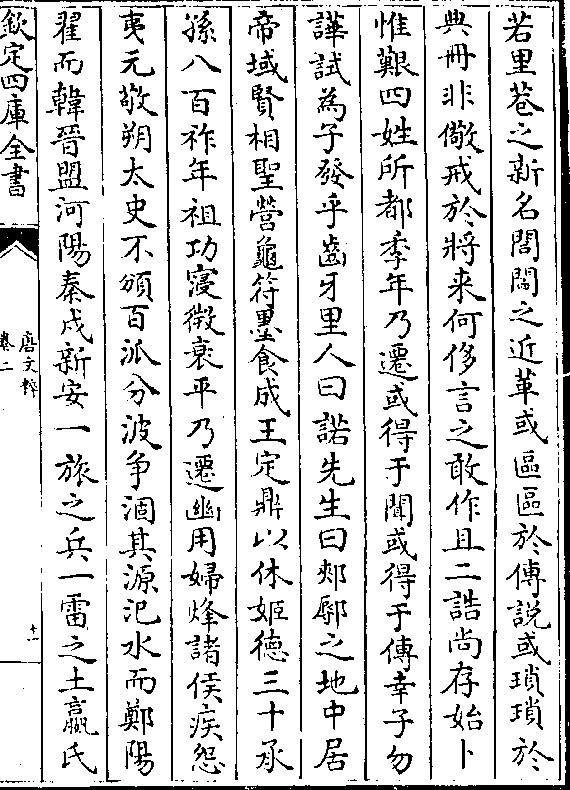 若里巷之新名閭閻之近革或區區於傳說或瑣瑣於
典冊非儆戒於將来何侈言之敢作且二誥尚存始卜
惟艱四姓所都季年乃遷或得于聞或得于傳幸子勿
譁試為子發乎齒牙里人曰諾先生曰郟鄏之地中居
帝域賢相聖營龜符墨食成王定鼎以休姬德三十承
孫八百祚年祖功寖微衰平乃遷幽用婦烽諸侯疾怨
夷元敬朔太史不頒百派分波争涸其源汜水而鄭陽
翟而韓晉盟河陽秦戍新安一旅之兵一雷之土嬴氏
欽定四庫全書
唐文粹
卷二
十一